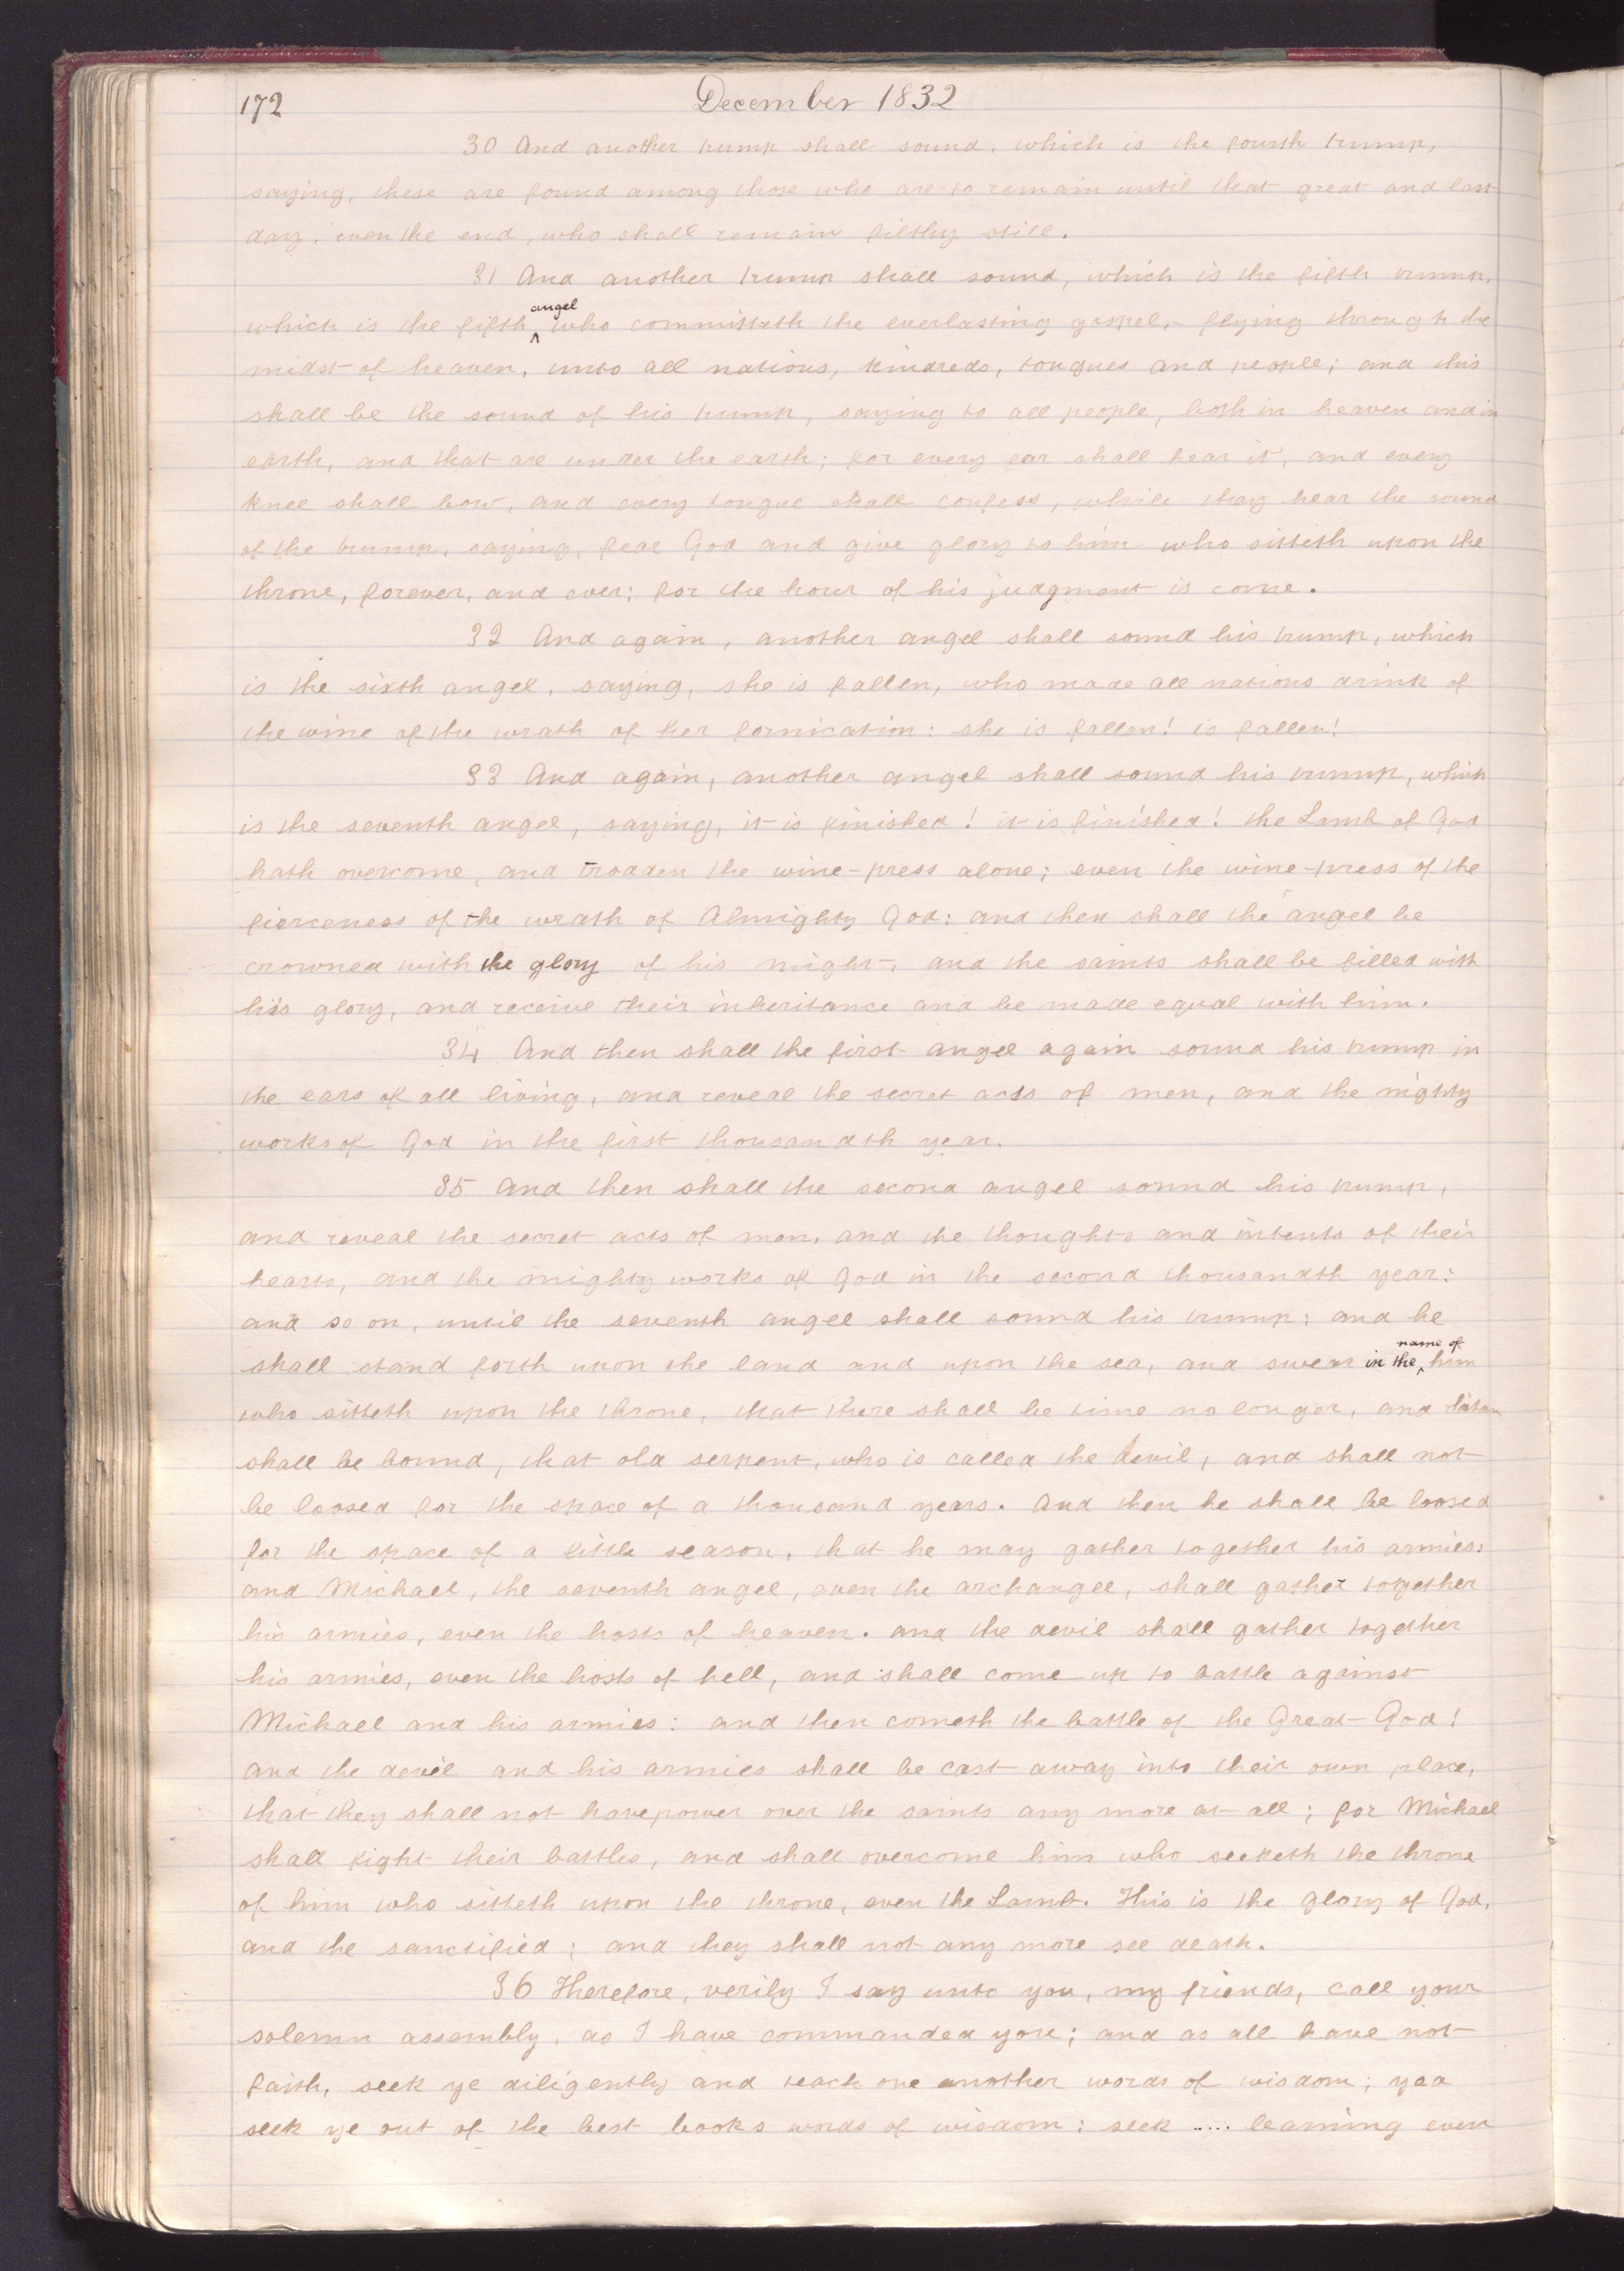 172
December 1832
30 And another trump shall sound, which is the fourth trump,
saying, these are found among those who are to remain until that great and last
day, even the end, who shall remain filthy still.
31 And another trump shall sound, which is the fifth trump,
angel
which is the fifth ^ who committeth the everlasting gospel,- flying through the
midst of heaven, unto all nations, kindreds, tongues and people; and this
shall be the sound of his trump, saying to all people, both in heaven and in
earth, and that are under the earth; for every ear shall hear it, and every
knee shall bow, and every tongue shall confess, while they hear the sound
of the trump, saying, fear God and give glory to him who sitteth upon the
throne, forever, and ever: for the hour of his judgment is come.
32 And again, another angel shall sound his trump, which
is the sixth angel, saying, she is fallen, who made all nations drink of
the wine of the wrath of her fornication: she is fallen! is fallen!
33 And again, another angel shall sound his trump, which
is the seventh angel, saying, it is finished! it is finished! the Lamb of God
hath overcome, and trodden the wine-press alone; even the wine-press of the
fierceness of the wrath of Almighty God: and then shall the angel be
crowned with the glory of his might, and the saints shall be filled with
his glory, and receive their inheritance and be made equal with him.
34 And then shall the first angel again sound his trump in
the ears of all living, and reveal the secret acts of men, and the mighty
works of God in the first thousandth year.
35 And then shall the second angel sound his trump,
and reveal the secret acts of men, and the thoughts and intents of their
hearts, and the mighty works of God in the second thousandth year:
and so on, until the seventh angel shall sound his trump: and he
name of
shall stand forth upon the land and upon the sea, and swear in the ^ him
who sitteth upon the throne, that there shall be time no longer, and Satan
shall be bound, that old serpent, who is called the devil, and shall not
be loosed for the space of a thousand years. And then he shall be loosed
for the space of a little season, that he may gather together his armies:
and Michael, the seventh angel, even the archangel, shall gather together
his armies, even the hosts of heaven. and the devil shall gather together
his armies, even the hosts of hell, and shall come up to battle against
Michael and his armies: and then cometh the battle of the Great God!
and the devil and his armies shall be cast away into their own place,
that they shall not have power over the saints any more at all; for Michael
shall fight their battles, and shall overcome him who seeketh the throne
of him who sitteth upon the throne, even the Lamb. This is the glory of God,
and the sanctified; and they shall not any more see death.
36 Therefore, verily I say unto you, my friends, call your
solemn assembly, as I have commanded you; and as all have not
faith, seek ye diligently and teach one another words of wisdom; yea
seek ye out of the best books words of wisdom: seek ..... learning even